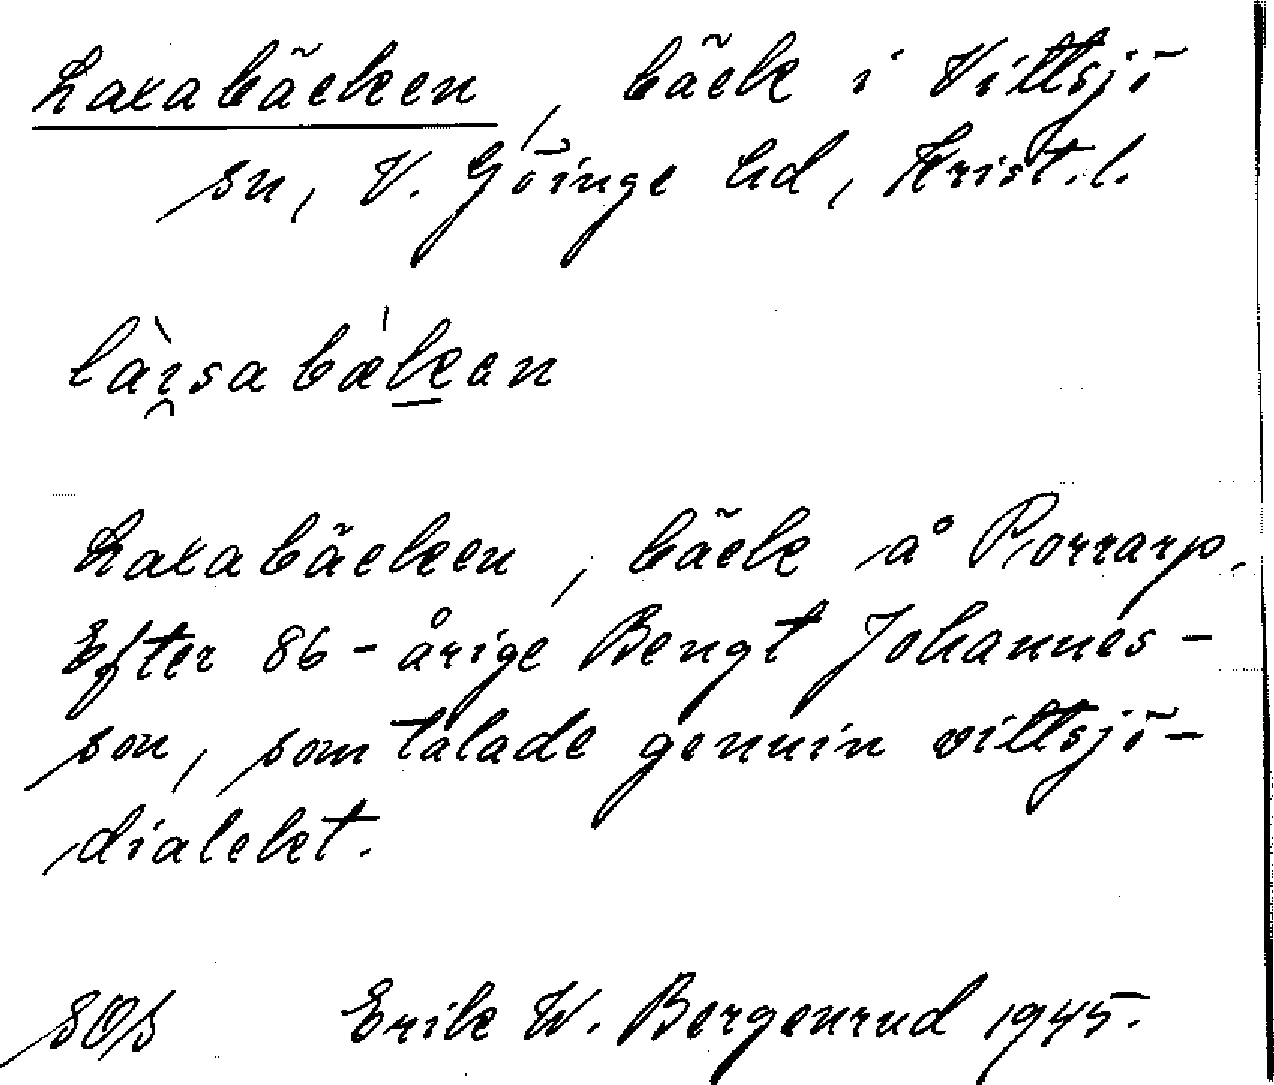 Laxabäcken, bäck i Vittsjö
sn, V. Göinge hd, Krist.l.
Laxabäcken, bäck å Porrarp.
Efter 86-årige Bengt Johannes-
son, som talade genuin vittsjö-
dialekt.
SOS Erik W. Bergenrud 1945.